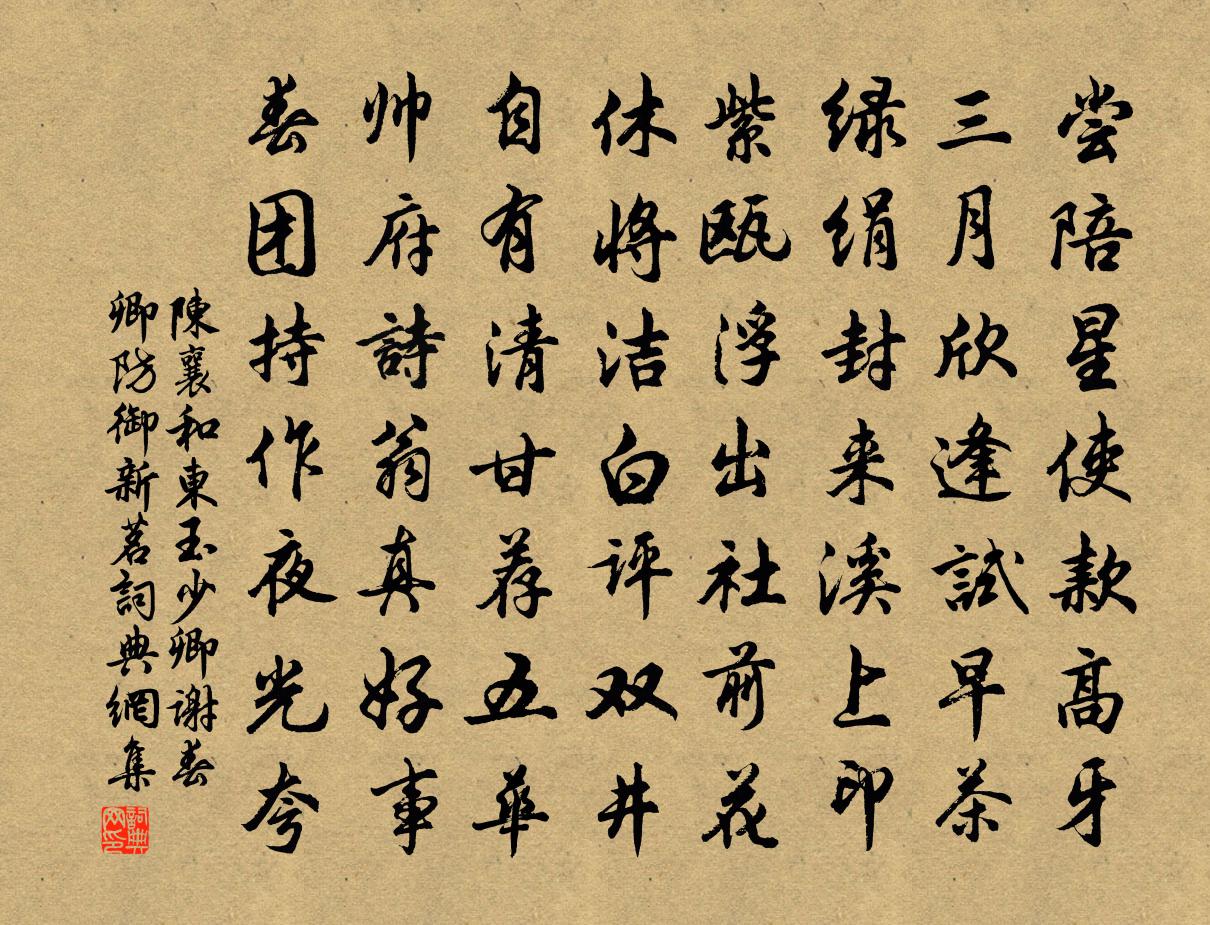 尝陪星使款高牙
三月欣逢試早茶
绿绢封来溪上印
紫瓯浮出社前花
休将洁白评双井
自有清甘荐五華
帅府詩翁真好事
春团持作夜光夸
陳襄和東玉少卿谢春
卿防御新茗詞典網集
詞典网印